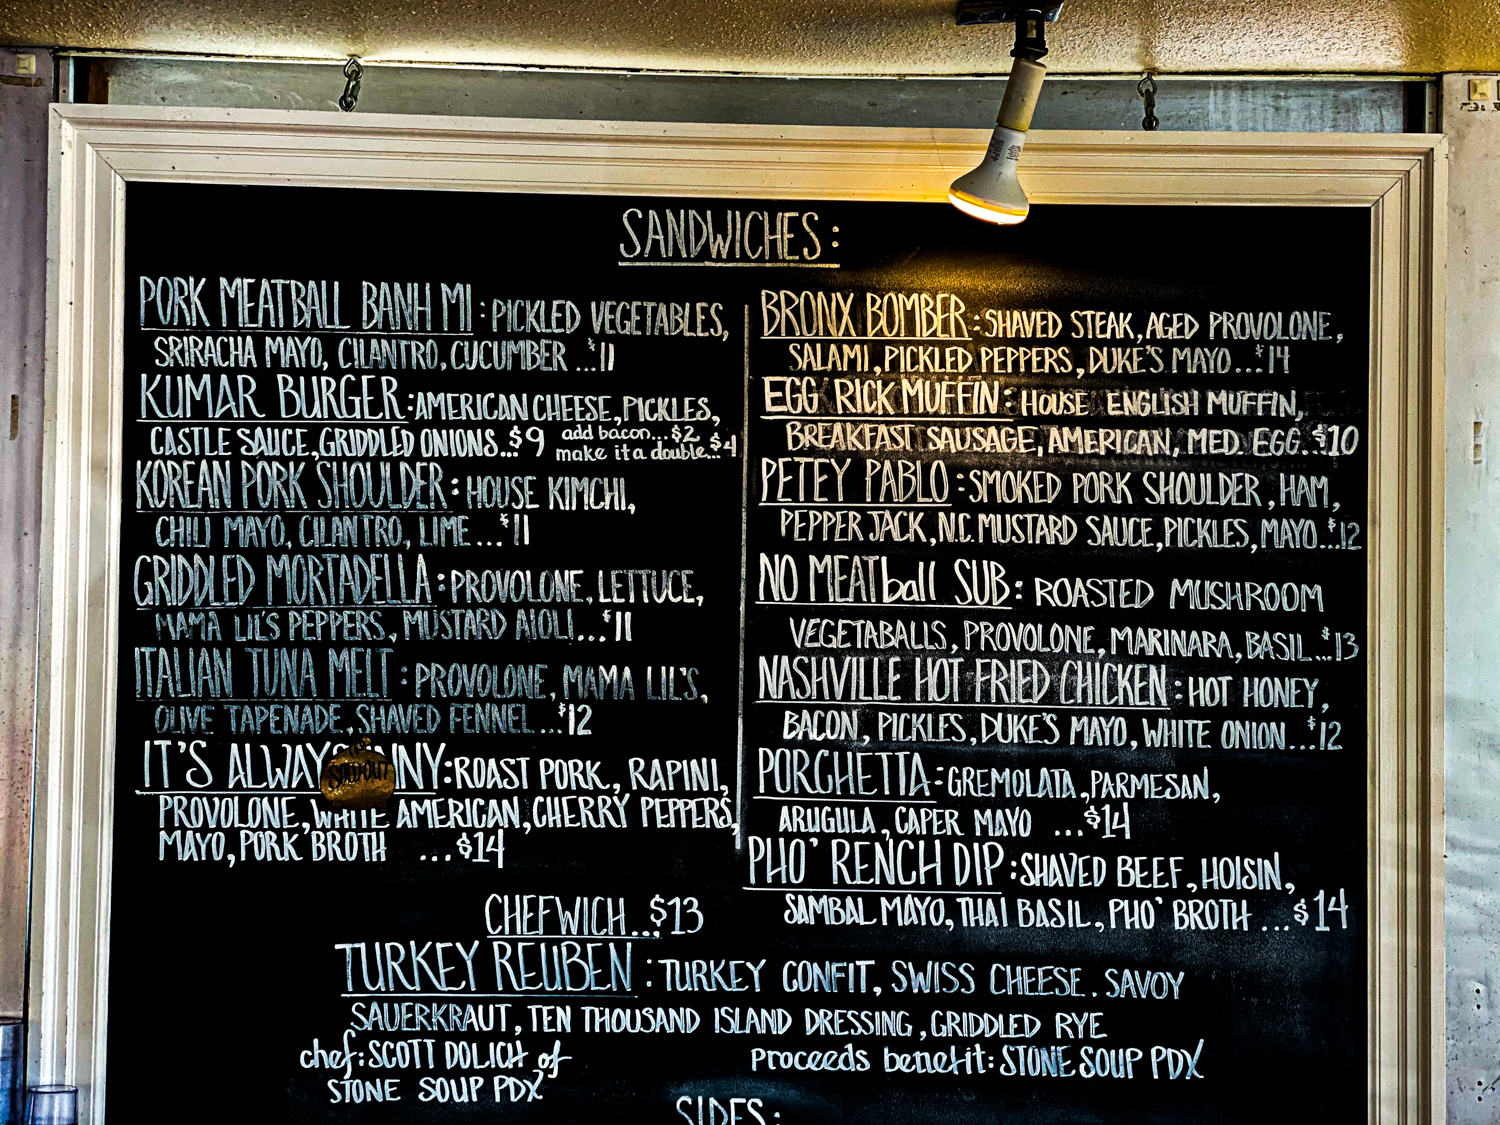 SANDWICHES:
PORK MEATBALL BANH MI: PICKLED VEGETABLES,
SRIRACHA MAYO, CILANTRO, CUCUMBER ...$11
KUMAR BURGER: AMERICAN CHEESE, PICKLES,
CASTLE SAUCE, GRIDDLED ONIONS...$9
add bacon...$2
make it a double...$4
KOREAN PORK SHOULDER: HOUSE KIMCHI,
CHILI MAYO, CILANTRO, LIME ...$11
GRIDDLED MORTADELLA: PROVOLONE, LETTUCE,
MAMA LIL'S PEPPERS, MUSTARD AIOLI...$11
ITALIAN TUNA MELT: PROVOLONE, MAMA LIL'S,
OLIVE TAPENADE, SHAVED FENNEL...$12
IT'S ALWAYS NNY: ROAST PORK, RAPINI,
SOLD OUT
PROVOLONE, WHITE AMERICAN, CHERRY PEPPERS,
MAYO, PORK BROTH ...$14
BRONX BOMBER: SHAVED STEAK, AGED PROVOLONE,
SALAMI, PICKLED PEPPERS, DUKE'S MAYO...$14
EGG RICK MUFFIN: HOUSE ENGLISH MUFFIN,
BREAKFAST SAUSAGE, AMERICAN, MED. EGG..$10
PETEY PABLO: SMOKED PORK SHOULDER, HAM,
PEPPER JACK, N.C. MUSTARD SAUCE, PICKLES, MAYO...$12
NO MEATball SUB: ROASTED MUSHROOM
VEGETABALLS, PROVOLONE, MARINARA, BASIL...$13
NASHVILLE HOT FRIED CHICKEN: HOT HONEY,
BACON, PICKLES, DUKE'S MAYO, WHITE ONION...$12
PORCHETTA: GREMOLATA, PARMESAN,
ARUGULA, CAPER MAYO ...$14
PHO' RENCH DIP: SHAVED BEEF, HOISIN,
SAMBAL MAYO, THAI BASIL, PHO' BROTH ...$14
CHEFWICH...$13
TURKEY REUBEN: TURKEY CONFIT, SWISS CHEESE, SAVOY
SAUERKRAUT, TEN THOUSAND ISLAND DRESSING, GRIDDLED RYE
chef: SCOTT DOLICH of
STONE SOUP PDX
proceeds benefit: STONE SOUP PDX
SIDES: